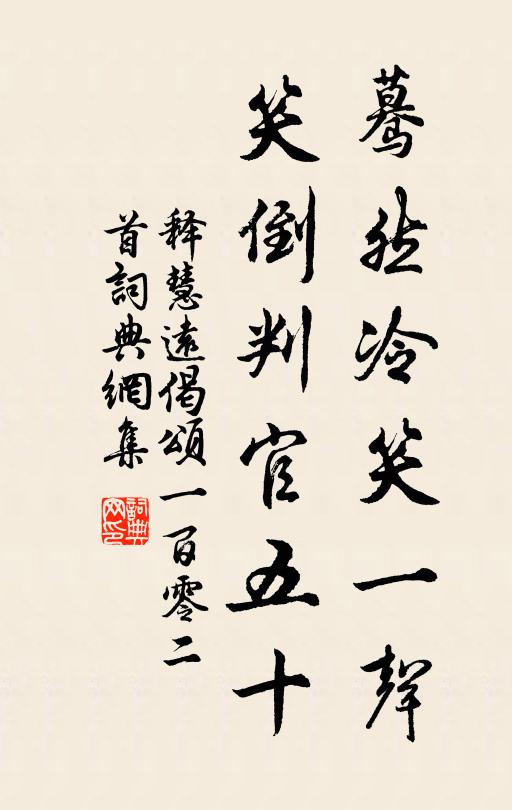 蓦然冷笑一聲
笑倒判官五十
释慧遠偈頌一百零二
首詞典網集
詞典网印